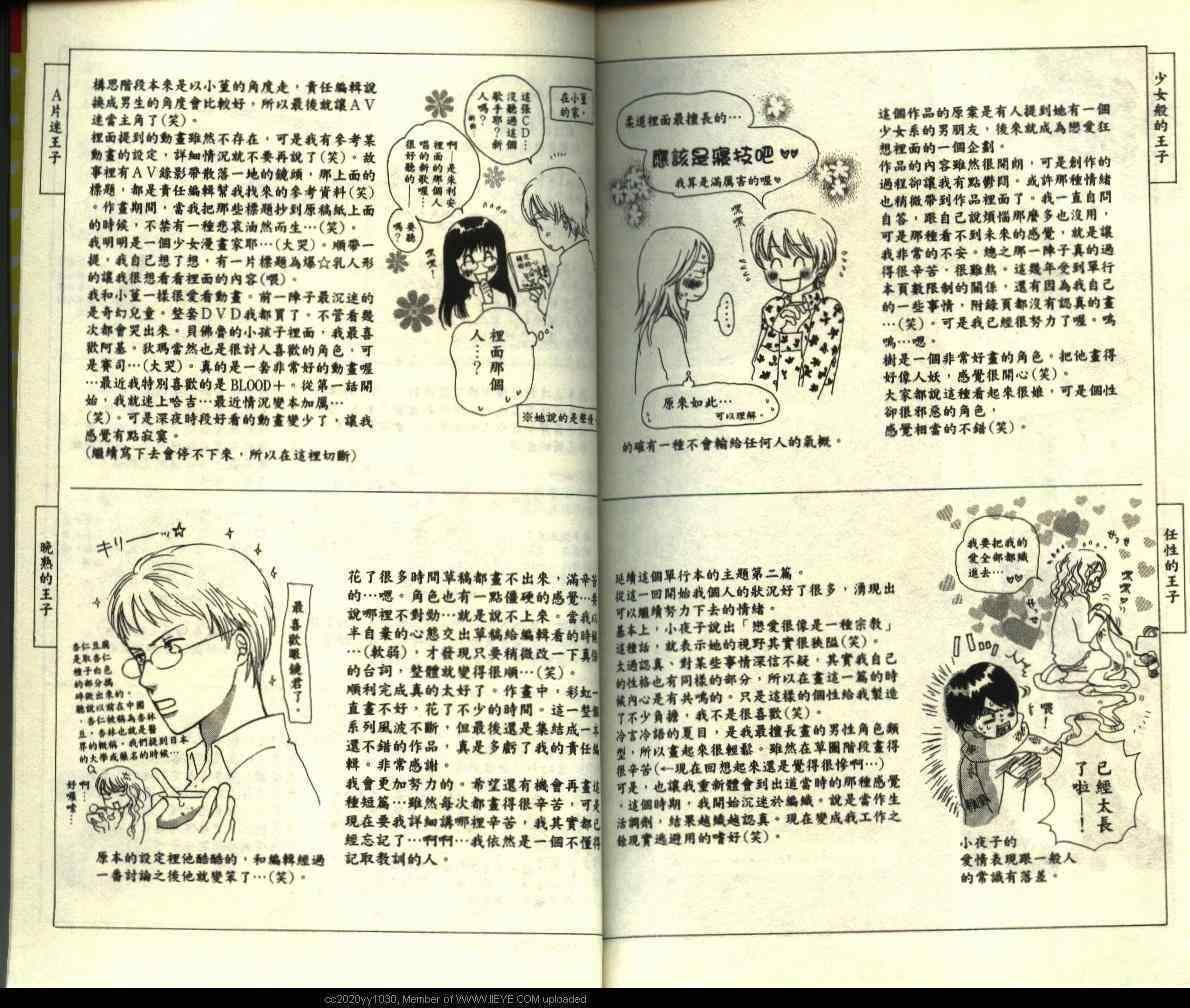 少女般的王子
這個作品的原案是有人提到她有一個
少女系的男朋友，後來就成為戀愛狂
想裡面的一個企劃。
作品的內容雖然很開朗，可是創作的
過程卻讓我有點鬱悶。或許那種情緒
也稍微帶到作品裡面了。我一直自問
自答，跟自己說煩惱那麼多也沒用，
可是那種看不到未來的感覺，就是讓
我非常的不安。總之那一陣子真的過
得很辛苦，很難熬。這幾年受到單行
本頁數限制的關係，還有因為我自己
的一些事情，附錄頁都沒有認真的畫
…(笑)。可是我已經很努力了喔。嗚
嗚…嗯。
樹是一個非常好畫的角色。把他畫得
好像人妖，感覺很開心(笑)。
大家都說這種看起來很娘，可是個性
卻很邪惡的角色，
感覺相當的不錯(笑)。
柔道裡面最擅長的…
應該是寢技吧♥♥
我算是滿厲害的喔♥
嘿嘿…
……
原來如此…
可以理解。
的確有一種不會輸給任何人的氣概。
任性的王子
延續這個單行本的主題第二篇。
從這一回開始我個人的狀況好了很多，湧現出
可以繼續努力下去的情緒。
基本上，小夜子說出「戀愛很像是一種宗教」
這種話，就表示她的視野其實很狹隘(笑)。
太過認真、對某些事情深信不疑，其實我自己
的性格也有同樣的部分，所以在畫這一篇的時
候內心是有共鳴的。只是這樣的個性給我製造
了不少負擔，我不是很喜歡(笑)。
冷言冷語的夏目，是我最擅長畫的男性角色類
型，所以畫起來很輕鬆。雖然在草圖階段畫得
很辛苦(←現在回想起來還是覺得很慘啊…)
可是，也讓我重新體會到出道當時的那種感覺
。這個時期，我開始沉迷於編織。說是當作生
活調劑，結果越織越認真。現在變成我工作之
餘現實逃避用的嗜好(笑)。
我要把我的
愛全部都織
進去…♥♥
嘿嘿♥
喂！
已經太長
了啦——！
小夜子的
愛情表現跟一般人
的常識有落差。
A片迷王子
構思階段本來是以小菫的角度走，責任編輯說
換成男生的角度會比較好，所以最後就讓AV
迷當主角了(笑)。
裡面提到的動畫雖然不存在，可是我有參考某
動畫的設定，詳細情況就不要再說了(笑)。故
事裡有AV錄影帶散落一地的鏡頭，那上面的
標題，都是責任編輯幫我找來的參考資料(笑)
。作畫期間，當我把那些標題抄到原稿紙上面
的時候，不禁有一種悲哀油然而生…(笑)。
我明明是一個少女漫畫家耶…(大哭)。順帶一
提，我自己想了想，有一片標題為爆☆乳人形
的讓我很想看看裡面的內容(喂)。
我和小菫一樣很愛看動畫。前一陣子最沉迷的
是奇幻兒童。整套DVD我都買了。不管看幾
次都會哭出來。貝佛魯的小孩子裡面，我最喜
歡阿基。狄瑪當然也是很討人喜歡的角色，可
是賽司…(大哭)。真的是一套非常好的動畫喔
…最近我特別喜歡的是BLOOD＋。從第一話開
始，我就迷上哈吉…最近情況變本加厲…
(笑)。可是深夜時段好看的動畫變少了，讓我
感覺有點寂寞。
(繼續寫下去會停不下來，所以在這裡切斷)
在小菫
的家。
這張CD…
沒聽過這個
歌手耶？新
人嗎？
啊，是朱利安
裡面的那個人
唱的新歌喔…
很好聽的——
要聽
嗎？
嘿嘿！
裡面那個
人…？
※她說的是聲優
晚熟的王子
花了很多時間草稿都畫不出來，滿辛苦
的…嗯。角色也有一點僵硬的感覺…
說哪裡不對勁…就是說不上來。當我以
半自棄的心態交出草稿給編輯看的時候
…(軟弱)，才發現只要稍微改一下真
的台詞，整體就變得很順…(笑)。
順利完成真的太好了。作畫中，彩虹一
直畫不好，花了不少的時間。這一整個
系列風波不斷，但最後還是集結成一本
還不錯的作品，真是多虧了我的責任編
輯。非常感謝。
我會更加努力的。希望還有機會再畫這
種短篇…雖然每次都畫得很辛苦，可是
現在要我詳細講哪裡辛苦，我其實都已
經忘記了…啊啊…我依然是一個不懂得
記取教訓的人。
キリーー☆
最喜歡眼鏡君了。
杏仁豆腐
是取杏仁
種子白色
的部分搗
碎做出來的。
聽說以前在中國
，杏仁被稱為杏林
豆，杏林也就是醫
界的概稱。我們提到日本
的大學或藥名的時候…
啊
好囉唆…
原本的設定裡他酷酷的，和編輯經過
一番討論之後他就變笨了…(笑)。
cc2020yy1030, Member of WWW.IIEYE.COM uploaded